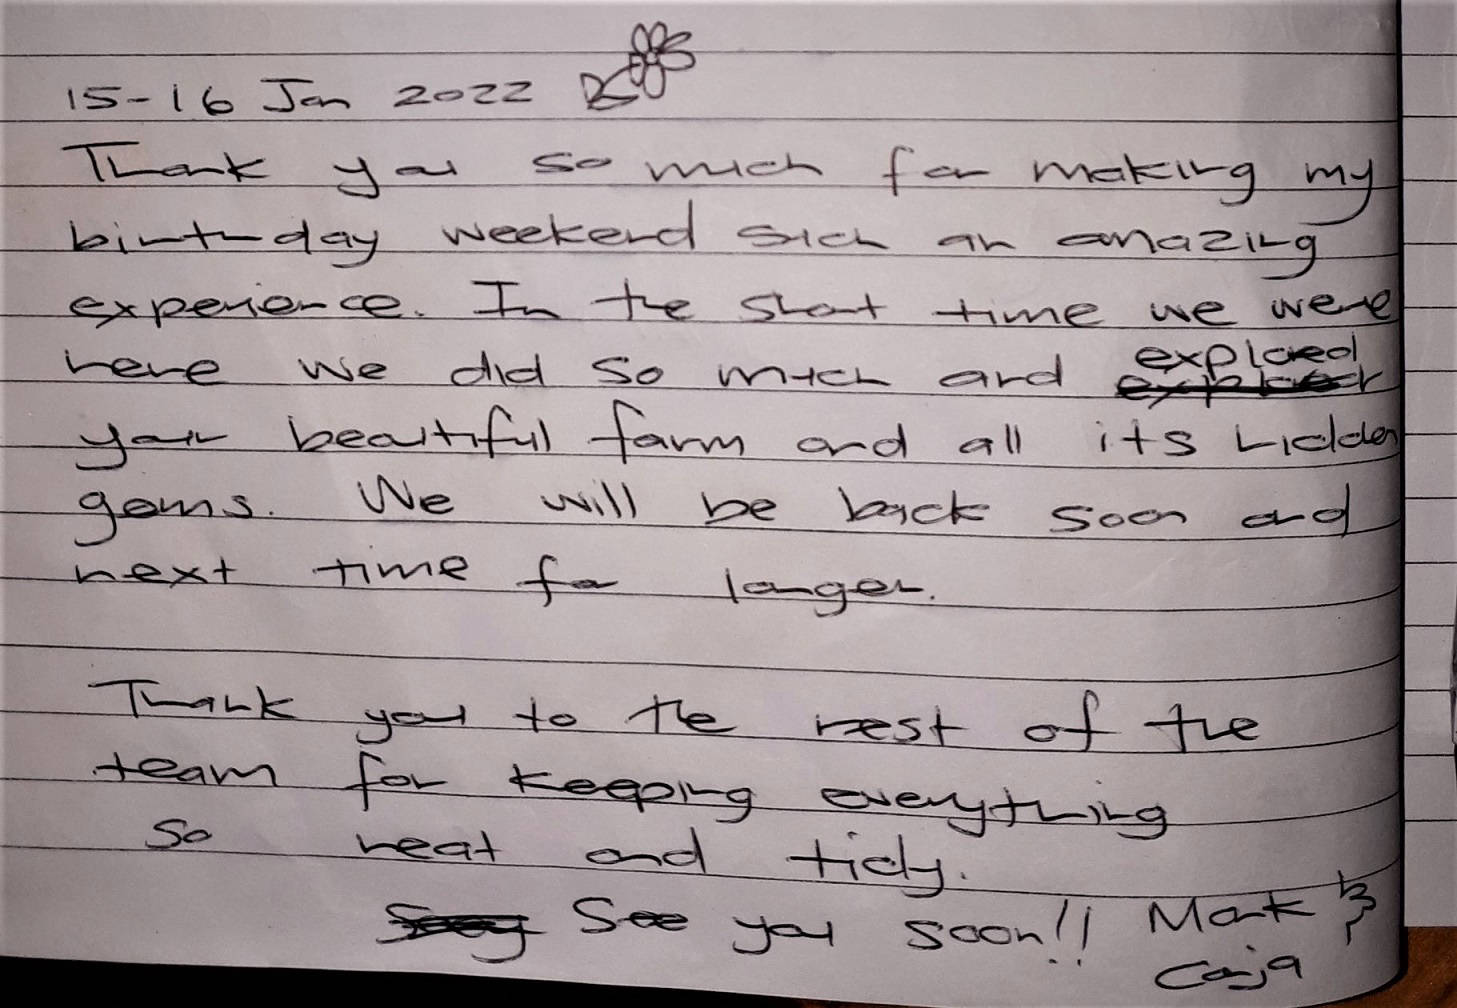 15-16 Jan 2022
Thank you so much for making my
birthday weekend such an amazing
experience. In the short time we were
here we did so much and explored
your beautiful farm and all its hidden
gems. We will be back soon and
next time for longer.
Thank you to the rest of the
team for keeping everything
so neat and tidy.
See you soon!! Mark &
Casja